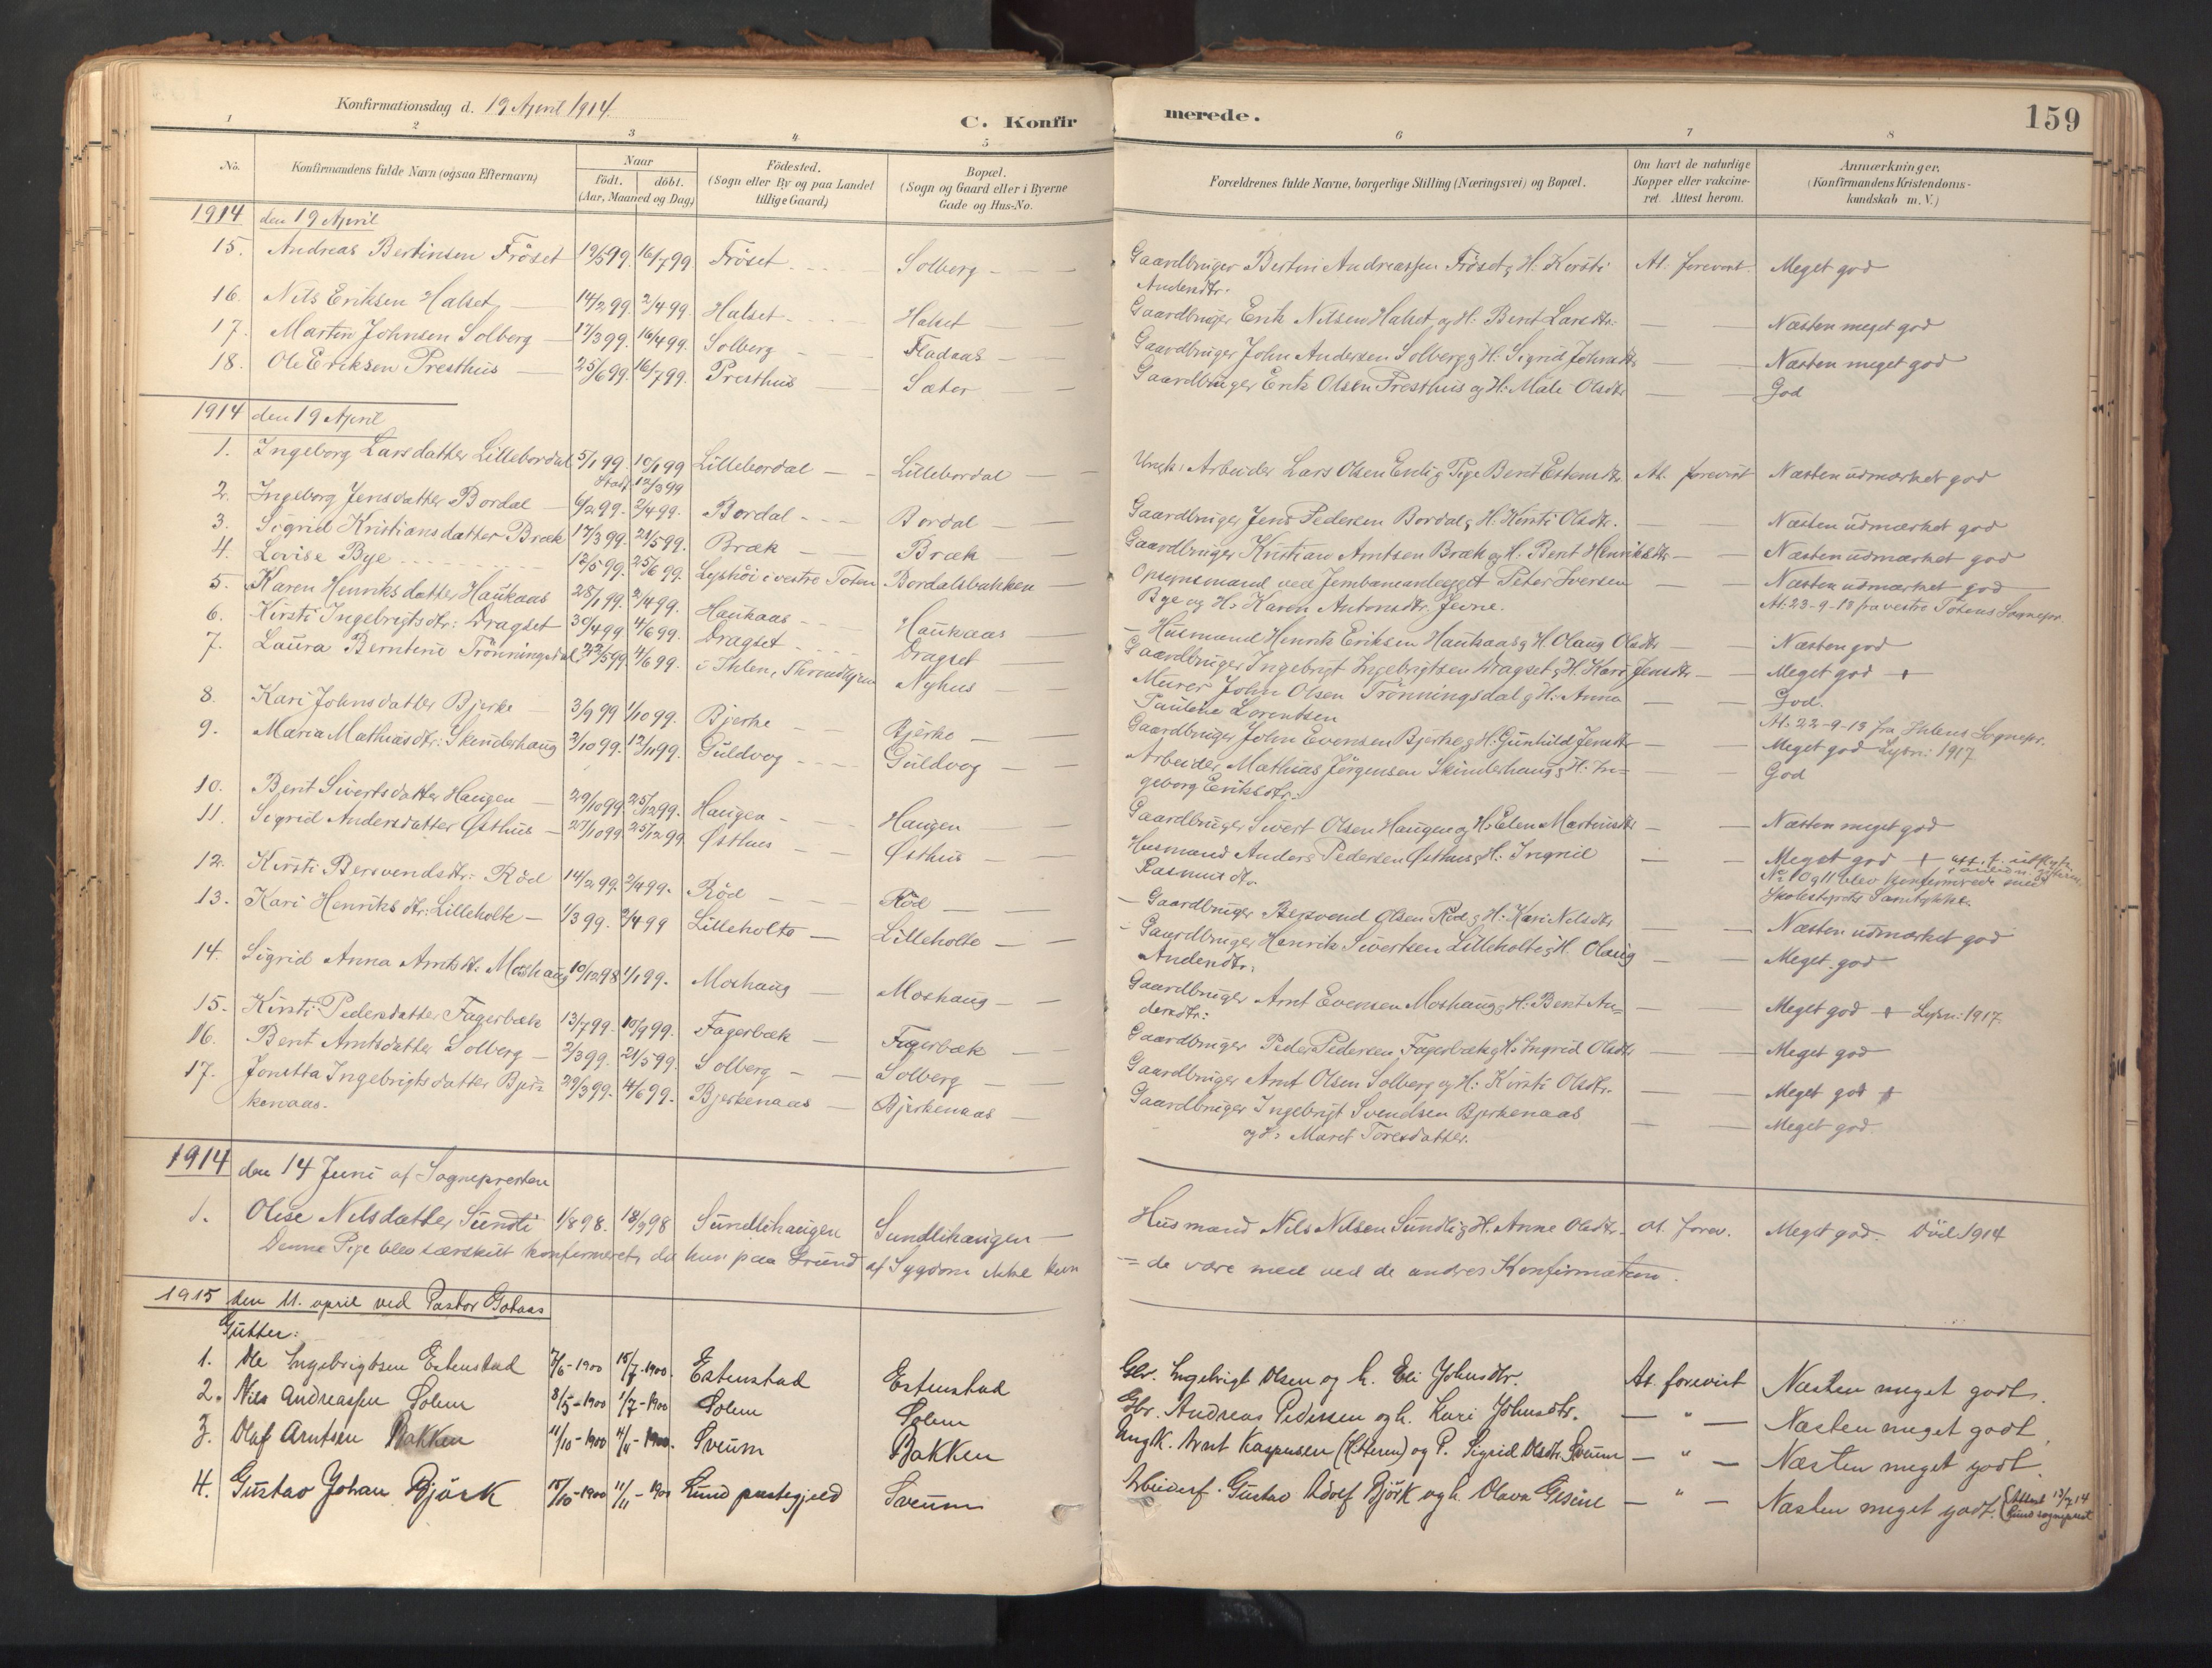 Konfirmationsdag d. 19 April 1914.
C. Konfirmerede.
159
1 2 3 4 5 6 7 8
No. Konfirmandens fulde Navn (ogsaa Efternavn) Naar födt. döbt. (Aar, Maaned og Dag) Födested. (Sogn eller By og paa Landet tillige Gaard) Bopæl. (Sogn og Gaard eller i Byerne Gade og Hus-No. Forældrenes fulde Navne, borgerlige Stilling (Næringsvei) og Bopæl. Om havt de naturlige Kopper eller vakcineret. Attest herom. Anmærkninger. (Konfirmandens Kristendomskundskab m. V.)
1914 den 19 April
15. Andreas Bertinsen Fröset 19/5 99 16/7 99 Fröset Solberg Gaardbruger Bertin Andreassen Fröset og H: Kirsti Andersdtr. At. forevist Meget god
16. Nils Eriksen Halset 14/2 99. 2/4 99. Halset Halset Gaardbruger Erik Nilsen Halset og H: Berit Larsdtr. Næsten meget god
17. Martin Johnsen Solberg 17/3 99. 16/4 99. Solberg Fladaas Gaardbruger John Andersen Solberg og H: Sigrid Johnsdtr Næsten meget god
18. Ole Eriksen Presthus 25/6 99. 16/7 99. Presthus Sæter Gaardbruger Erik Olsen Presthus og H: Mali Olsdtr God
1914 den 19 April
1. Ingeborg Larsdatter Lillebordal 5/1 99. 10/1 99 Stadf. 12/3 99 Lillebordal Lillebordal Ungk: Arbeider Lars Olsen Enli og Pige Berit Estensdtr. At. forevist Næsten udmærket god
2. Ingeborg Jensdatter Bordal 6/2 99. 2/4 99. Bordal Bordal Gaardbruger Jens Pedersen Bordal og H: Kirsti Olsdtr. Næsten udmærket god
3. Sigrid Kristiansdatter Bræk 17/3 99. 21/5 99. Bræk Bræk Gaardbruger Kristian Arntsen Bræk og H. Berit Henriksdtr Næsten udmærket god
4. Lovise Bye 12/5 99. 25/6 99. Lyshöi i vestre Toten Bordalsbakken Opsynsmand ved Jernbaneanlegget Peter Iversen Bye og H: Karen Antonsdtr. Jevne. Næsten udmærket god At. 23-9-13 fra vestre Totens Sognepr.
5. Karen Henriksdatter Haukaas 28/1 99. 2/4 99. Haukaas Haukaas Husmand Henrik Eriksen Haukaas og H. Olaug Olsdtr Næsten god
6. Kirsti Ingebrigtsdtr: Dragset 30/4 99. 4/6 99. Dragset Dragset Gaardbruger Ingebrigt Ingebrigtsen Dragset og H. Kari Jensdtr Meget god +
7. Laura Berntine Trönningsdal 22/5 99. 4/6 99. i Ihlen, Throndhjem Nyhus Murer John Olsen Trönningsdal og H: Anna Pauline Lorentsen God. At. 22-9-13 fra Ihlens Sognepr.
8. Kari Johnsdatter Bjerke 3/9 99 1/10 99. Bjerke Bjerke Gaardbruger John Evensen Bjerke og H: Gunhild Jensdtr Meget god Lysn: 1917
9. Maria Mathiasdtr: Skinderhaug 2/10 99. 12/11 99. Guldvog Guldvog Arbeider Mathias Jörgensen Skinderhaug og H: Ingeborg Eriksdtr: God
10. Berit Sivertsdatter Haugen 29/10 99. 25/12 99. Haugen Haugen Gaardbruger Sivert Olsen Haugen og H: Elen Martinsdtr Næsten meget god
11. Sigrid Andersdatter Østhus 27/10 99. 25/12 99. Østhus Østhus Husmand Anders Pedersen Østhus og H: Ingrid Rasmusdtr Meget god + No 10 og 11 blev konfirmerede med Skolestyrets Samtykke.
12. Kirsti Bersvendsdtr: Röd 14/2 99. 2/4 99. Röd Röd Gaardbruger Bersvend Olsen Röd og H: Kari Nilsdtr Næsten udmærket god
13. Kari Henriksdtr: Lilleholte 1/3 99. 2/4 99 Lilleholte Lilleholte Gaardbruger Henrik Sivertsen Lilleholte og H. Olaug Andersdtr: Meget god
14. Sigrid Anna Arntsdtr: Moshaug 10/12 98 1/1 99. Moshaug Moshaug Gaardbruger Arnt Evensen Moshaug og H: Berit Andersdtr: Meget god + Lysn: 1917
15. Kirsti Pedersdatter Fagerbæk 13/7 99. 10/9 99. Fagerbæk Fagerbæk Gaardbruger Peder Pedersen Fagerbæk og H: Ingrid Olsdtr Meget god
16. Berit Arntsdatter Solberg 2/3 99. 21/5 99. Solberg Solberg Gaardbruger Arnt Olsen Solberg og H: Kirsti Olsdtr. Meget god +
17. Jonetta Ingebrigtsdatter Bjerkenaas. 29/3 99. 4/6 99. Bjerkenaas Bjerkenaas Gaardbruger Ingebrigt Svendsen Bjerkenaas og H: Marit Toresdatter. Meget god.
1914 den 14 Juni af Sognepresten
1. Oline Nilsdatter Sundli 1/8 98. 18/9 98 Sundlihaugen Sundlihaugen Husmand Nils Nilsen Sundli og H. Anne Olsdtr. At. forev. Meget god. Död 1914
Denne Pige blev særskilt konfirmeret, da hun paa Grund af Sygdom ikke kun = de være med ved de andres Konfirmation.
1915 den 11. april ved Pastor Gotaas
Gutter:
1. Ole Ingebrigtsen Estenstad 7/6 - 1900 15/7 - 1900 Estenstad Estenstad Gbr. Ingebrigt Olsen og h. Eli Johnsdtr. At. forevist Næsten meget godt.
2. Nils Andreassen Solem 8/5 - 1900 1/7 - 1900 Solem Solem Gbr. Andreas Pedersen og h. Kari Johnsdtr. — " — Næsten meget godt.
3. Olaf Arntsen Bakken 11/10 - 1900 4/11 - 1900. Sveum Bakken Ungk. Arnt Kaspersen og P. Sigrid Olsdtr. Sveum — " — Næsten meget godt.
4. Gustav Johan Björk 15/10 - 1900 11/11 - 1900 Lund prestegjeld Sveum Arbeiderf. Gustav Adolf Björk og h. Olava Gesine — " — Næsten meget godt. (Attest 13/7 14 Lund sogneprest